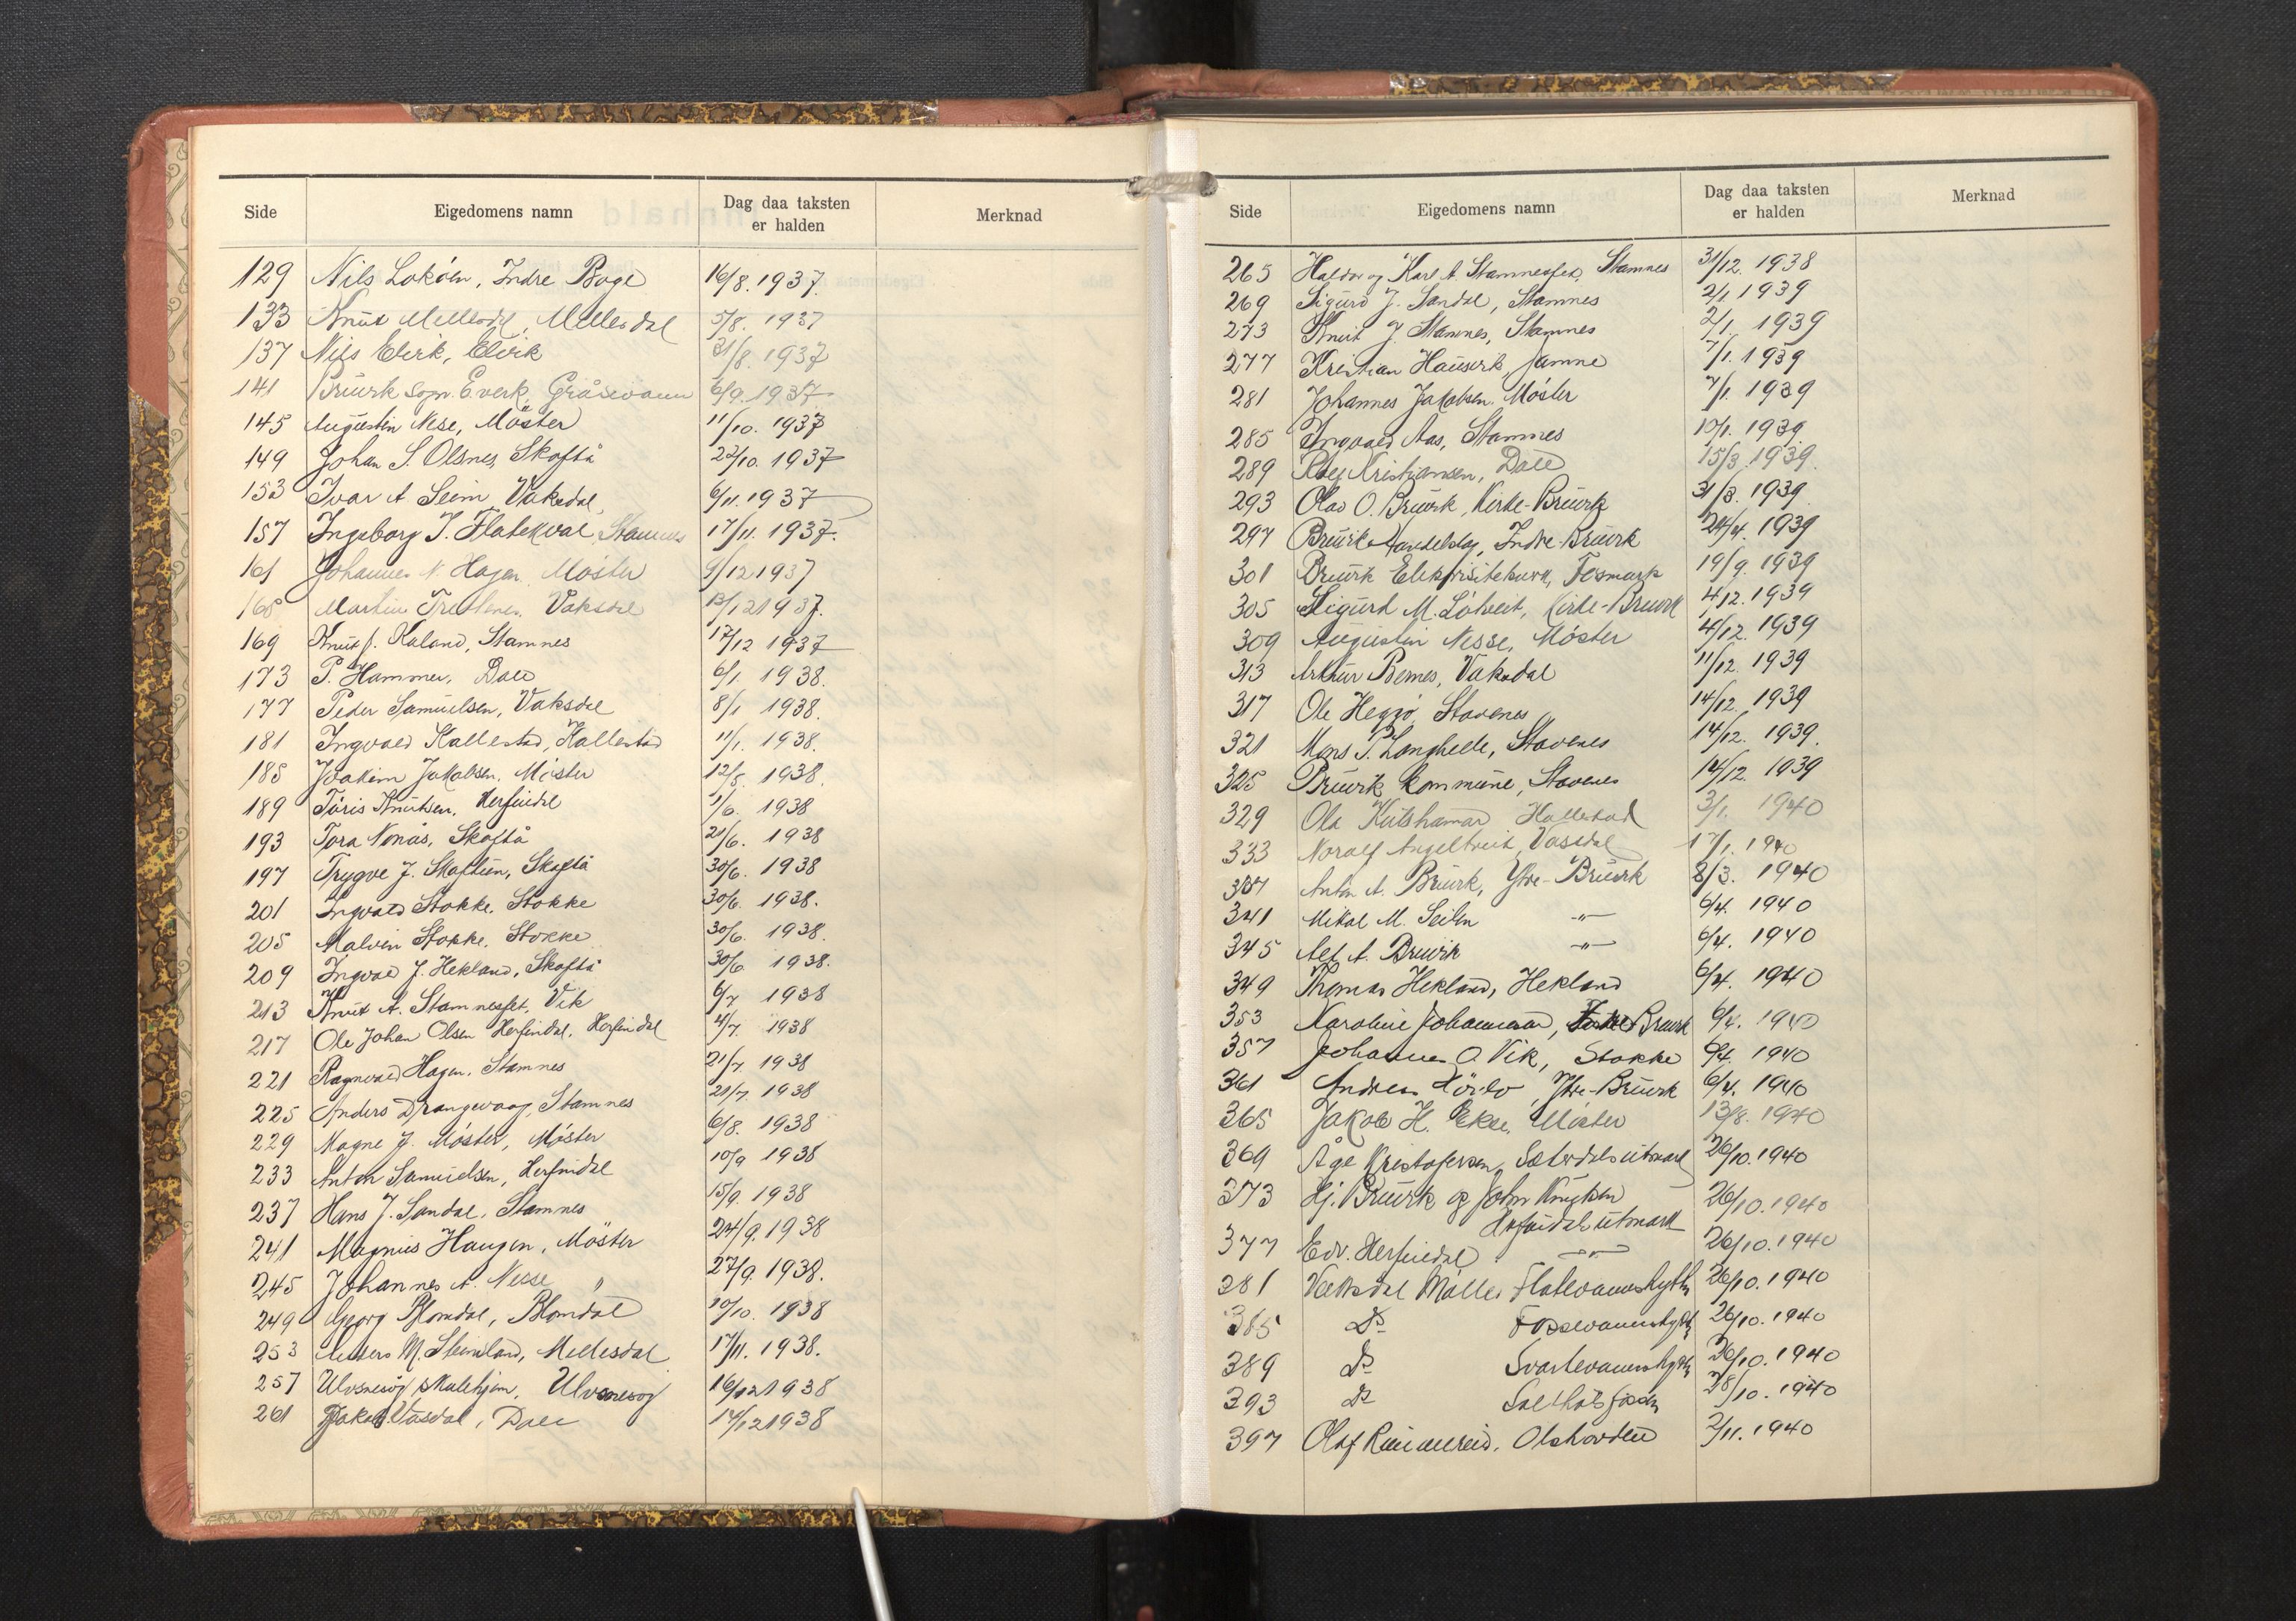 Side Eigedomens namn Dag daa taksten er halden Merknad
129 Nils Loköen, Indre Boge 16/8. 1937.
133 Knut Millesdal, Millesdal 5/8. 1937
137 Nils Elvik, Elvik 31/8. 1937
141 Bruvik sogn. E.verk, Gråsevann 6/9. 1937
145 Augustin Nese, Möster 11/10. 1937
149 Johan S. Olsnes, Skoftå 22/10. 1937
153 Ivar A. Seim, Vaksdal 6/11. 1937
157 Ingeborg J. Flatekval, Stamnes 17/11. 1937.
161 Johannes N. Hagen, Möster 9/12 1937
165 Martin Vaksdal 13/12 1937.
169 Knut J. Kaland, Stamnes 17/12 1937
173 P. Hammer, Dale 6/1. 1938.
177 Peder Samuelsen, Vaksdal 8/1 1938.
181 Ingvald Kallestad, Kallestad 11/1. 1938.
185 Joakim Jakobsen, Möster 12/5. 1938.
189 Töris Knutsen, Herfindal 1/6. 1938
193 Tora Nonås, Skoftå 21/6. 1938
197 Trygve J. Skaftun, Skoftå 30/6. 1938
201 Ingvald Stokke, Stokke 30/6. 1938.
205 Malvin Stokke, Stokke 30/6. 1938.
209 Ingvald J. Hekland, Skoftå 30/6 1938.
213 Knut A. Stamneshet, Vik 6/7 1938
217 Ole Johan Olsen Herfindal, Herfindal 4/7. 1938
221 Ragnvald Hagen, Stamnes 21/7. 1938
225 Anders Drangevaag, Stamnes 21/7. 1938
229 Magne J. Möster, Möster 6/8. 1938
233 Anton Samuelsen, Herfindal 10/9 1938
237 Hans J. Sandal, Stamnes 15/9. 1938
241 Magnus Haugen, Möster 24/9. 1938
245 Johannes A. Nese " 27/9. 1938.
249 Georg Blomdal, Blomdal 10/10. 1938
253 Anders M. Steinsland, Millesdal 17/11. 1938.
257 Ulvsnesöy skuleheim, Ulvsnesöy 16/12 1938
261 Jakob Väsdal, Dale 14/12 1938
Side Eigedomens namn Dag daa taksten er halden Merknad
265 Haldor og Karl A. Stamneshet, Stamnes 31/12. 1938
269 Sigurd J. Sandal, Stamnes 2/1 1939
273 Knut J. Stamnes, Stamnes 2/1. 1939
277 Kristian Hausvik, Jamne 7/1. 1939
281 Johannes Jakobsen, Möster 7/1. 1939
285 Ingvald Aas, Stamnes 10/1. 1939
289 Rolf Kristiansen, Dale 15/3. 1939.
293 Olav O. Bruvik, Kirke-Bruvik 31/3. 1939
297 Bruvik Handelslag, Indre-Bruvik 24/4. 1939
301 Bruvik Elektrisitetsverk, Fosmark 19/9. 1939
305 Sigurd M. Lötveit, Kirke-Bruvik 4/12. 1939
309 Augustin Nesse, Möster 4/12. 1939
313 Arthur Bernes, Vaksdal 11/12. 1939
317 Ole Heggö, Stavenes 14/12. 1939
321 Mons P. Langhelle, Stavenes 14/12. 1939.
325 Bruvik Kommune, Stavenes 14/12. 1939
329 Ola Kutshamar Hallestad 3/1. 1940
333 Noralf Angeltveit, Vaksdal 17/1. 1940
337 Anton A. Bruvik, Ytre-Bruvik 8/3. 1940
341 Mikal M. Seilen -"- 6/4. 1940
345 Alf A. Bruvik -"- 6/4. 1940
349 Thomas Hekland, Hekland 6/4. 1940
353 Karoline Johannesen, Bruvik 6/4. 1940
357 Johannes O. Vik, Stokke 6/4. 1940
361 Andreas , Ytre-Bruvik 6/4. 1940
365 Jakob H. Ekse, Möster 13/8. 1940
369 Åge Kristofersen, Sæterdalsutmark 26/10. 1940
373 Hj. Bruvik og John Knutsen 26/10. 1940
Herfindalsutmark
377 Edv. Herfindal -"- 26/10. 1940
381 Vaksdal Mölle, Flatevannshytte 26/10. 1940
385 Do Fossevannshytte 26/10. 1940
389 Do Svartevannshytte 26/10. 1940
393 Do 28/10. 1940
397 Olaf 2/11. 1940